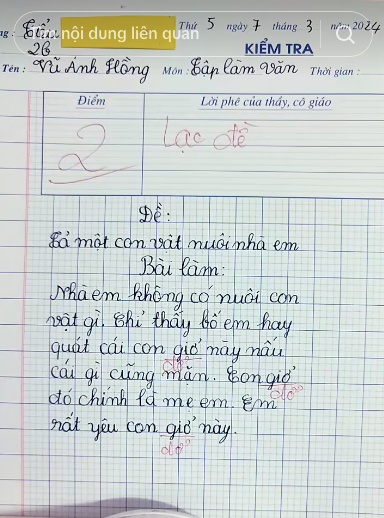 nội dung liên quan
Thứ 5 ngày 7 tháng 3 năm 2024
2B
KIỂM TRA
Tên : Vũ Ánh Hồng Môn : Tập làm văn Thời gian :
Điểm Lời phê của thầy, cô giáo
2 Lạc đề
Đề:
Tả một con vật nuôi nhà em
Bài làm:
Nhà em không có nuôi con
vật gì. Chỉ thấy bố em hay
quát cái con giở này nấu
đở
cái gì cũng mặn. Con giở
đở
đó chính là mẹ em. Em
rất yêu con giở này.
đở